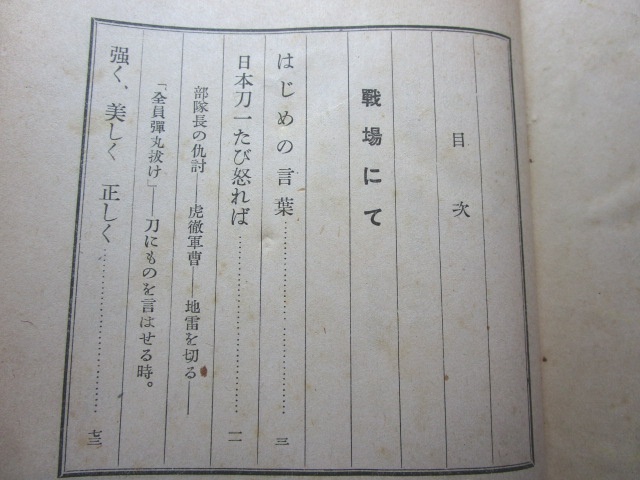 目次
戰場にて
はじめの言葉…………………………三
日本刀一たび怒れば…………………………一一
部隊長の仇討――虎徹軍曹――地雷を切る――
「全員彈丸拔け」――刀にものを言はせる時。
强く、美しく 正しく…………………………七三